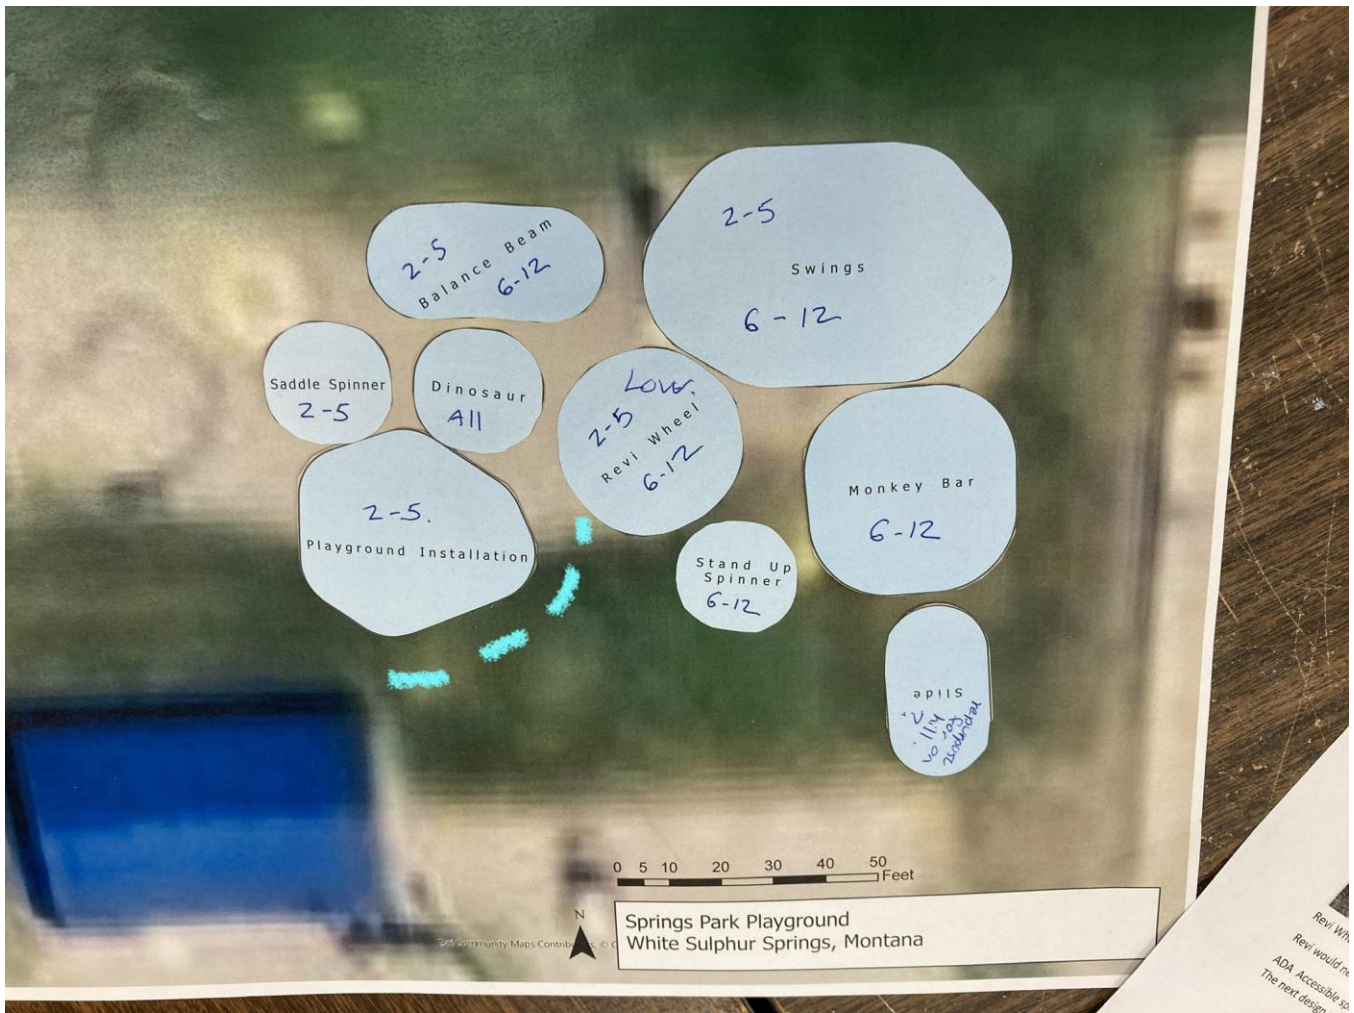 2-5
Balance Beam
6-12
2-5
Swings
6 - 12
Saddle Spinner
2-5
Dinosaur
All
Lower.
2-5
Revi Wheel
6-12
2-5.
Playground Installation
Monkey Bar
6-12
Stand Up
Spinner
6-12
Slide
for on
hill.
2.
0 5 10 20 30 40 50
Feet
N
Community Maps Contrib
, © C
Springs Park Playground
White Sulphur Springs, Montana
Revi Wh
Revi would ne
ADA Accessible sp
The next design